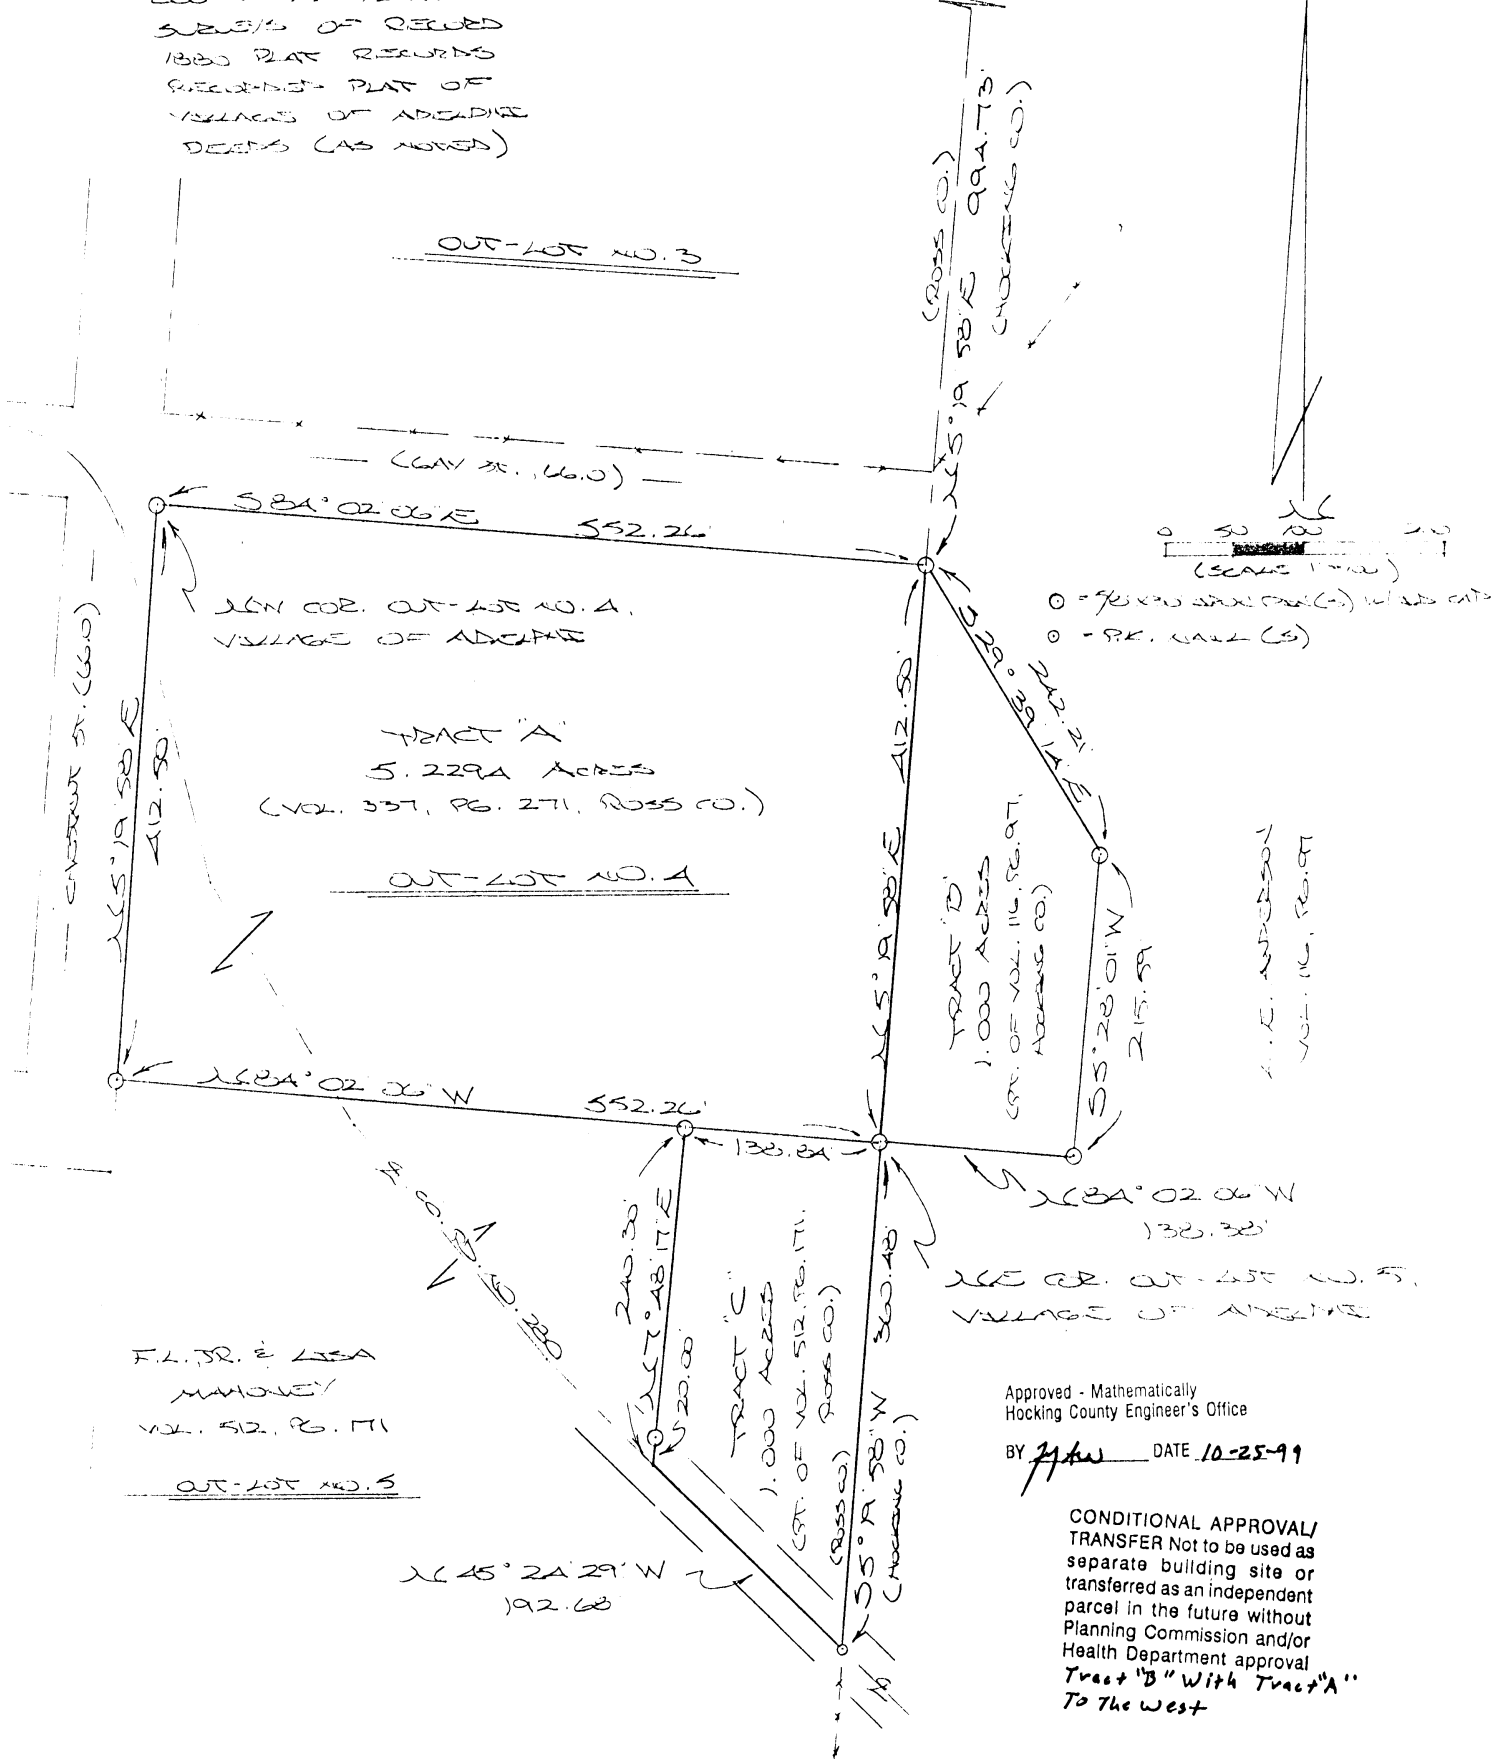 SURVEYS OF RECORD
1880 PLAT RECORDS
RECORDED PLAT OF
VILLAGE OF ADELPHI
DEEDS (AS NOTED)
OUT-LOT NO. 3
(ROSS CO.)
N 5° 19' 58" E 994.73'
(HOCKING CO.)
(GAY ST., 66.0)
S 84° 02' 06" E 552.26'
N
0 50 100 200
(SCALE 1"=100')
⊙ - 5/8"x30" IRON PIN(S) W/ I.D. CAP
⊙ - P.K. NAIL (S)
NW COR. OUT-LOT NO. 4,
VILLAGE OF ADELPHI
CHESTNUT ST. (66.0)
N 5° 19' 58" E
412.50'
TRACT "A"
5.2294 ACRES
(VOL. 337, PG. 271, ROSS CO.)
OUT-LOT NO. 4
N 5° 19' 58" E 412.50'
S 29° 39' 14" E
242.21'
TRACT "B"
1.000 ACRES
(PT. OF VOL. 116, PG. 97,
HOCKING CO.)
S 5° 28' 01" W
215.59'
ANDERSON
VOL. 116, PG. 97
N 84° 02' 06" W 552.26'
138.84'
N 84° 02' 06" W
138.38'
NE COR. OUT-LOT NO. 5,
VILLAGE OF ADELPHI
240.30'
N 7° 48' 17" E
20.00'
TRACT "C"
1.000 ACRES
(PT. OF VOL. 512, PG. 171,
ROSS CO.)
(ROSS CO.)
S 5° 19' 58" W 360.48'
(HOCKING CO.)
F.L. JR. & LISA
MAHONEY
VOL. 512, PG. 171
OUT-LOT NO. 5
N 45° 24' 29" W
192.68'
Approved - Mathematically
Hocking County Engineer's Office
BY DATE 10-25-99
CONDITIONAL APPROVAL/
TRANSFER Not to be used as
separate building site or
transferred as an independent
parcel in the future without
Planning Commission and/or
Health Department approval
Tract "B" With Tract "A"
To The West